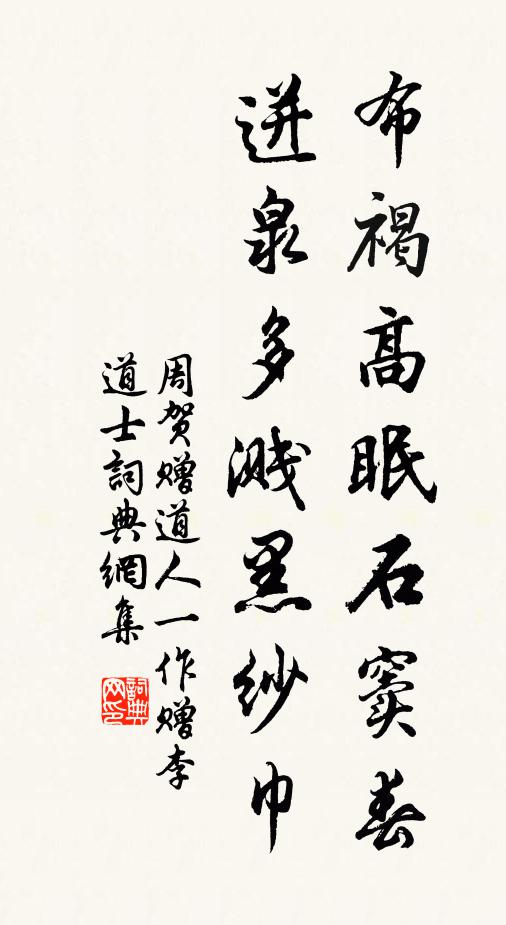 布褐高眠石窦春
迸泉多溅黑纱巾
周贺赠道人一作赠李
道士詞典網集
詞典网印